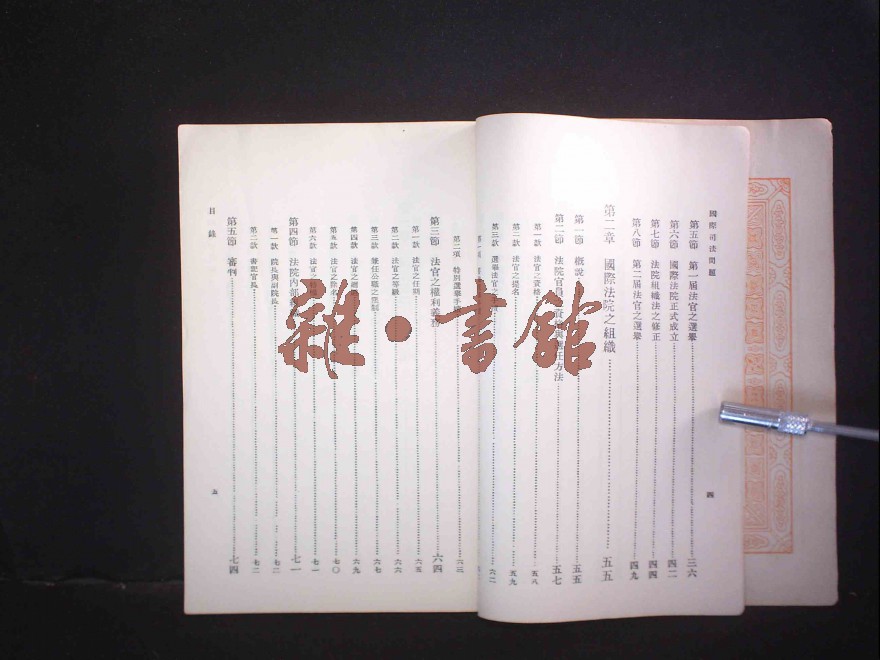 國際司法問題
第五節 第一届法官之選舉 三六
第六節 國際法院正式成立 四二
第七節 法院組織法之修正 四四
第八節 第二届法官之選舉 四九
第二章 國際法院之組織 五五
第一節 概說 五五
第二節 法院官 方法 五七
第一款 法官之資格 五八
第二款 法官之提名 五九
第三款 選舉法官之 六二
四
第二項 特別選舉手 六三
第三節 法官之權利義務 六四
第一款 法官之任期 六五
第二款 法官之等級 六六
第三款 兼任公職之限制 六七
第四款 法官之 六九
第五款 法官之 七〇
第六款 法官之 七一
第四節 法院內部 七一
第一款 院長與副院長 七二
第二款 書記官長 七二
第五節 審判 七四
目錄
五
雜·書館